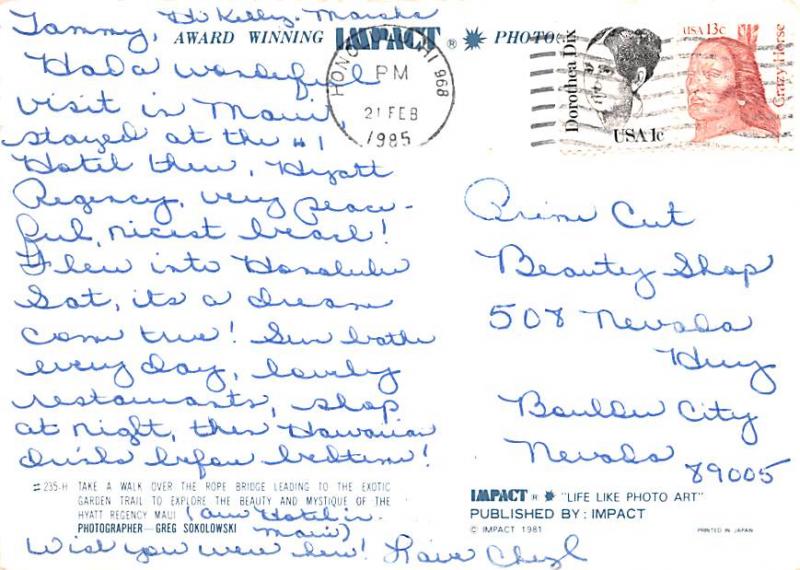 Tammy, Hi Kelly, Marsha
AWARD WINNING IMPACT ® PHOTO
Had a wonderful
visit in Maui,
stayed at the #1
Hotel there, Hyatt
Regency, very peace-
ful, nicest beach!
Flew into Honolulu
Sat, its a dream
come true! Sun bathe
every day, lovely
restaurants, shop
at night, then Hawaiian
drinks before bedtime!
235-H TAKE A WALK OVER THE ROPE BRIDGE LEADING TO THE EXOTIC
GARDEN TRAIL TO EXPLORE THE BEAUTY AND MYSTIQUE OF THE
HYATT REGENCY MAUI (our Hotel in
PHOTOGRAPHER—GREG SOKOLOWSKI Maui)
Wish you were here! Love Cheryl
HONO HI 968
PM
21 FEB
1985
Dorothea Dix
USA 1c
USA 13c
Crazy Horse
Prime Cut
Beauty Shop
508 Nevada
Hwy
Boulder City
Nevada
89005
IMPACT ® "LIFE LIKE PHOTO ART"
PUBLISHED BY: IMPACT
© IMPACT 1981
PRINTED IN JAPAN